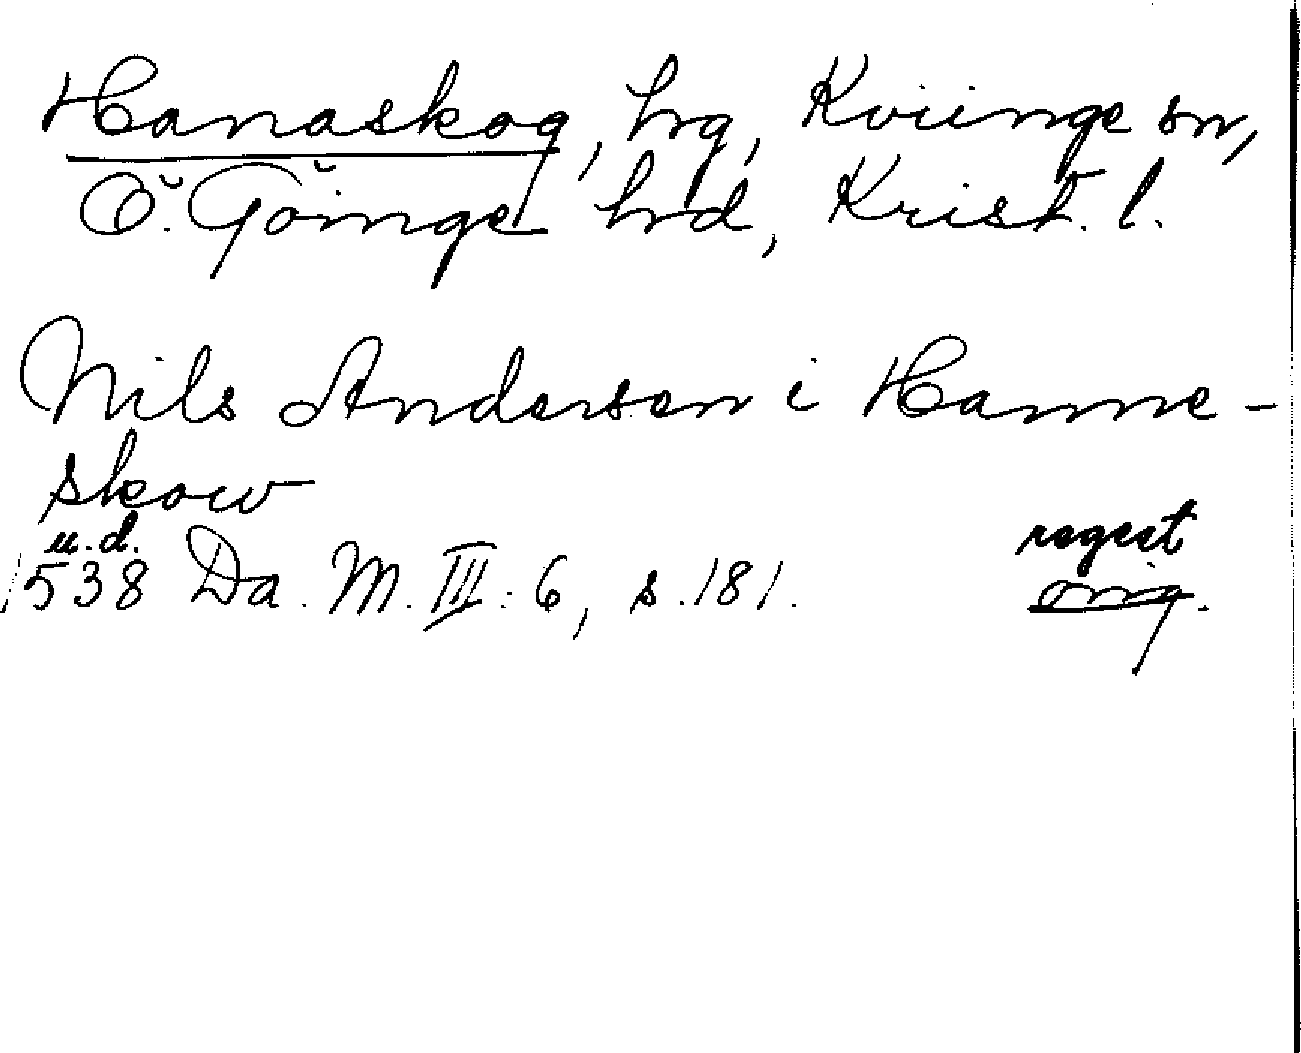 Hanaskog, hrg, Kviinge sn,
Ö. Göinge hrd, Krist. l.
Nils Andersen i Hanne-
skow
u.d.
1538 Da. M. III: 6, s. 181.
regest
orig.